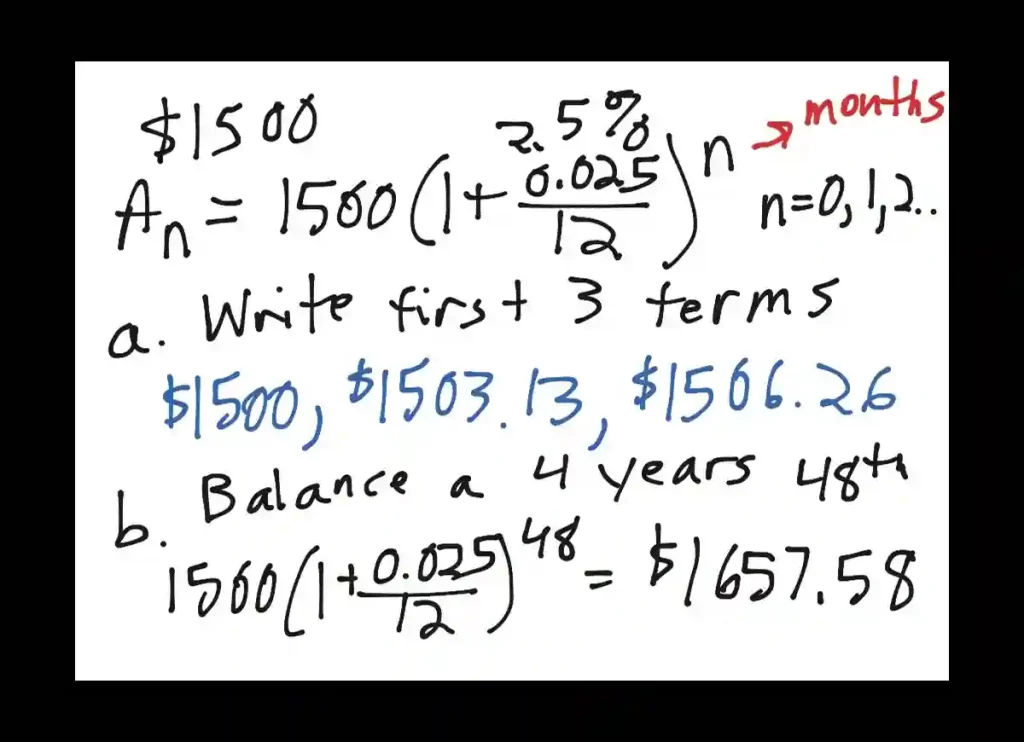 $1500 2.5%
Aₙ = 1500(1+0.025/12)ⁿ → months
n=0,1,2..
a. Write first 3 terms
$1500, $1503.13, $1506.26
b. Balance a 4 years 48th
1500(1+0.025/12)⁴⁸ = $1657.58